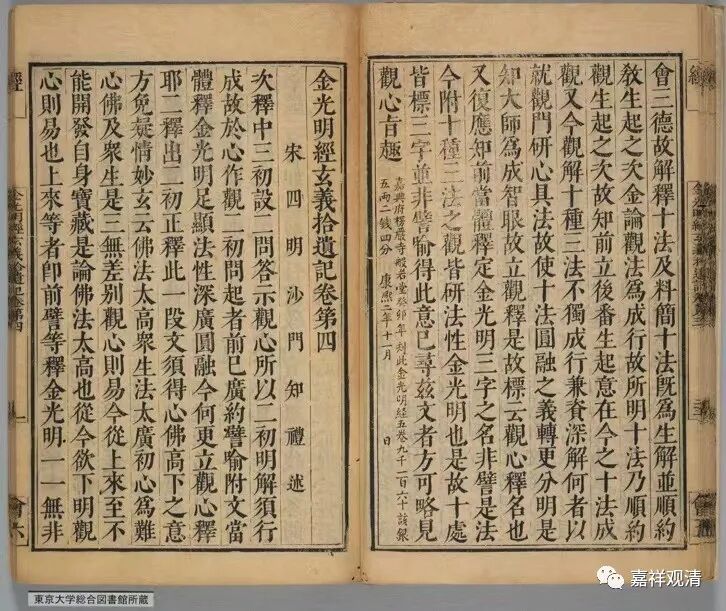 會三德故解釋十法及料簡十法既為生解並順約
教生起之次今論觀法為成行故所明十法乃順約
觀生起之次故知前立後番生起意在今之十法成
觀又今觀解十種三法不獨成行兼資深解何者以
就觀門研心具法故使十法圓融之義轉更分明是
知大師為成智眼故立觀釋是故標云觀心釋名也
又復應知前當體釋定金光明三字之名非譬是法
今附十種三法之觀皆研法性金光明也是故十處
皆標三字並非譬喻得此意已尋茲文者方可略見
觀心旨趣
嘉興府楞嚴寺般若堂癸卯年刻此金光明經五卷九千一百六十該銀
五兩二錢四分 康熙二年十一月 日
金光明經玄義拾遺記卷第四
宋四明沙門知禮述
次釋中三初設二問答示觀心所以二初明解須行
成故於心作觀二初問起者前已廣約譬喻附文當
體釋金光明足顯法性深廣圓融今何更立觀心釋
耶二釋出二初正釋此一段文須得心佛高下之意
方免疑情妙玄云佛法太高眾生法太廣初心為難
心佛及眾生是三無差別觀心則易今從上來至不
能開發自身寶藏是論佛法太高也從今欲下明觀
心則易也上來等者即前譬等釋金光明一一無非
經
金光明經玄義拾遺記卷第四
一
會六
東京大学総合図書館所蔵
嘉祥观清